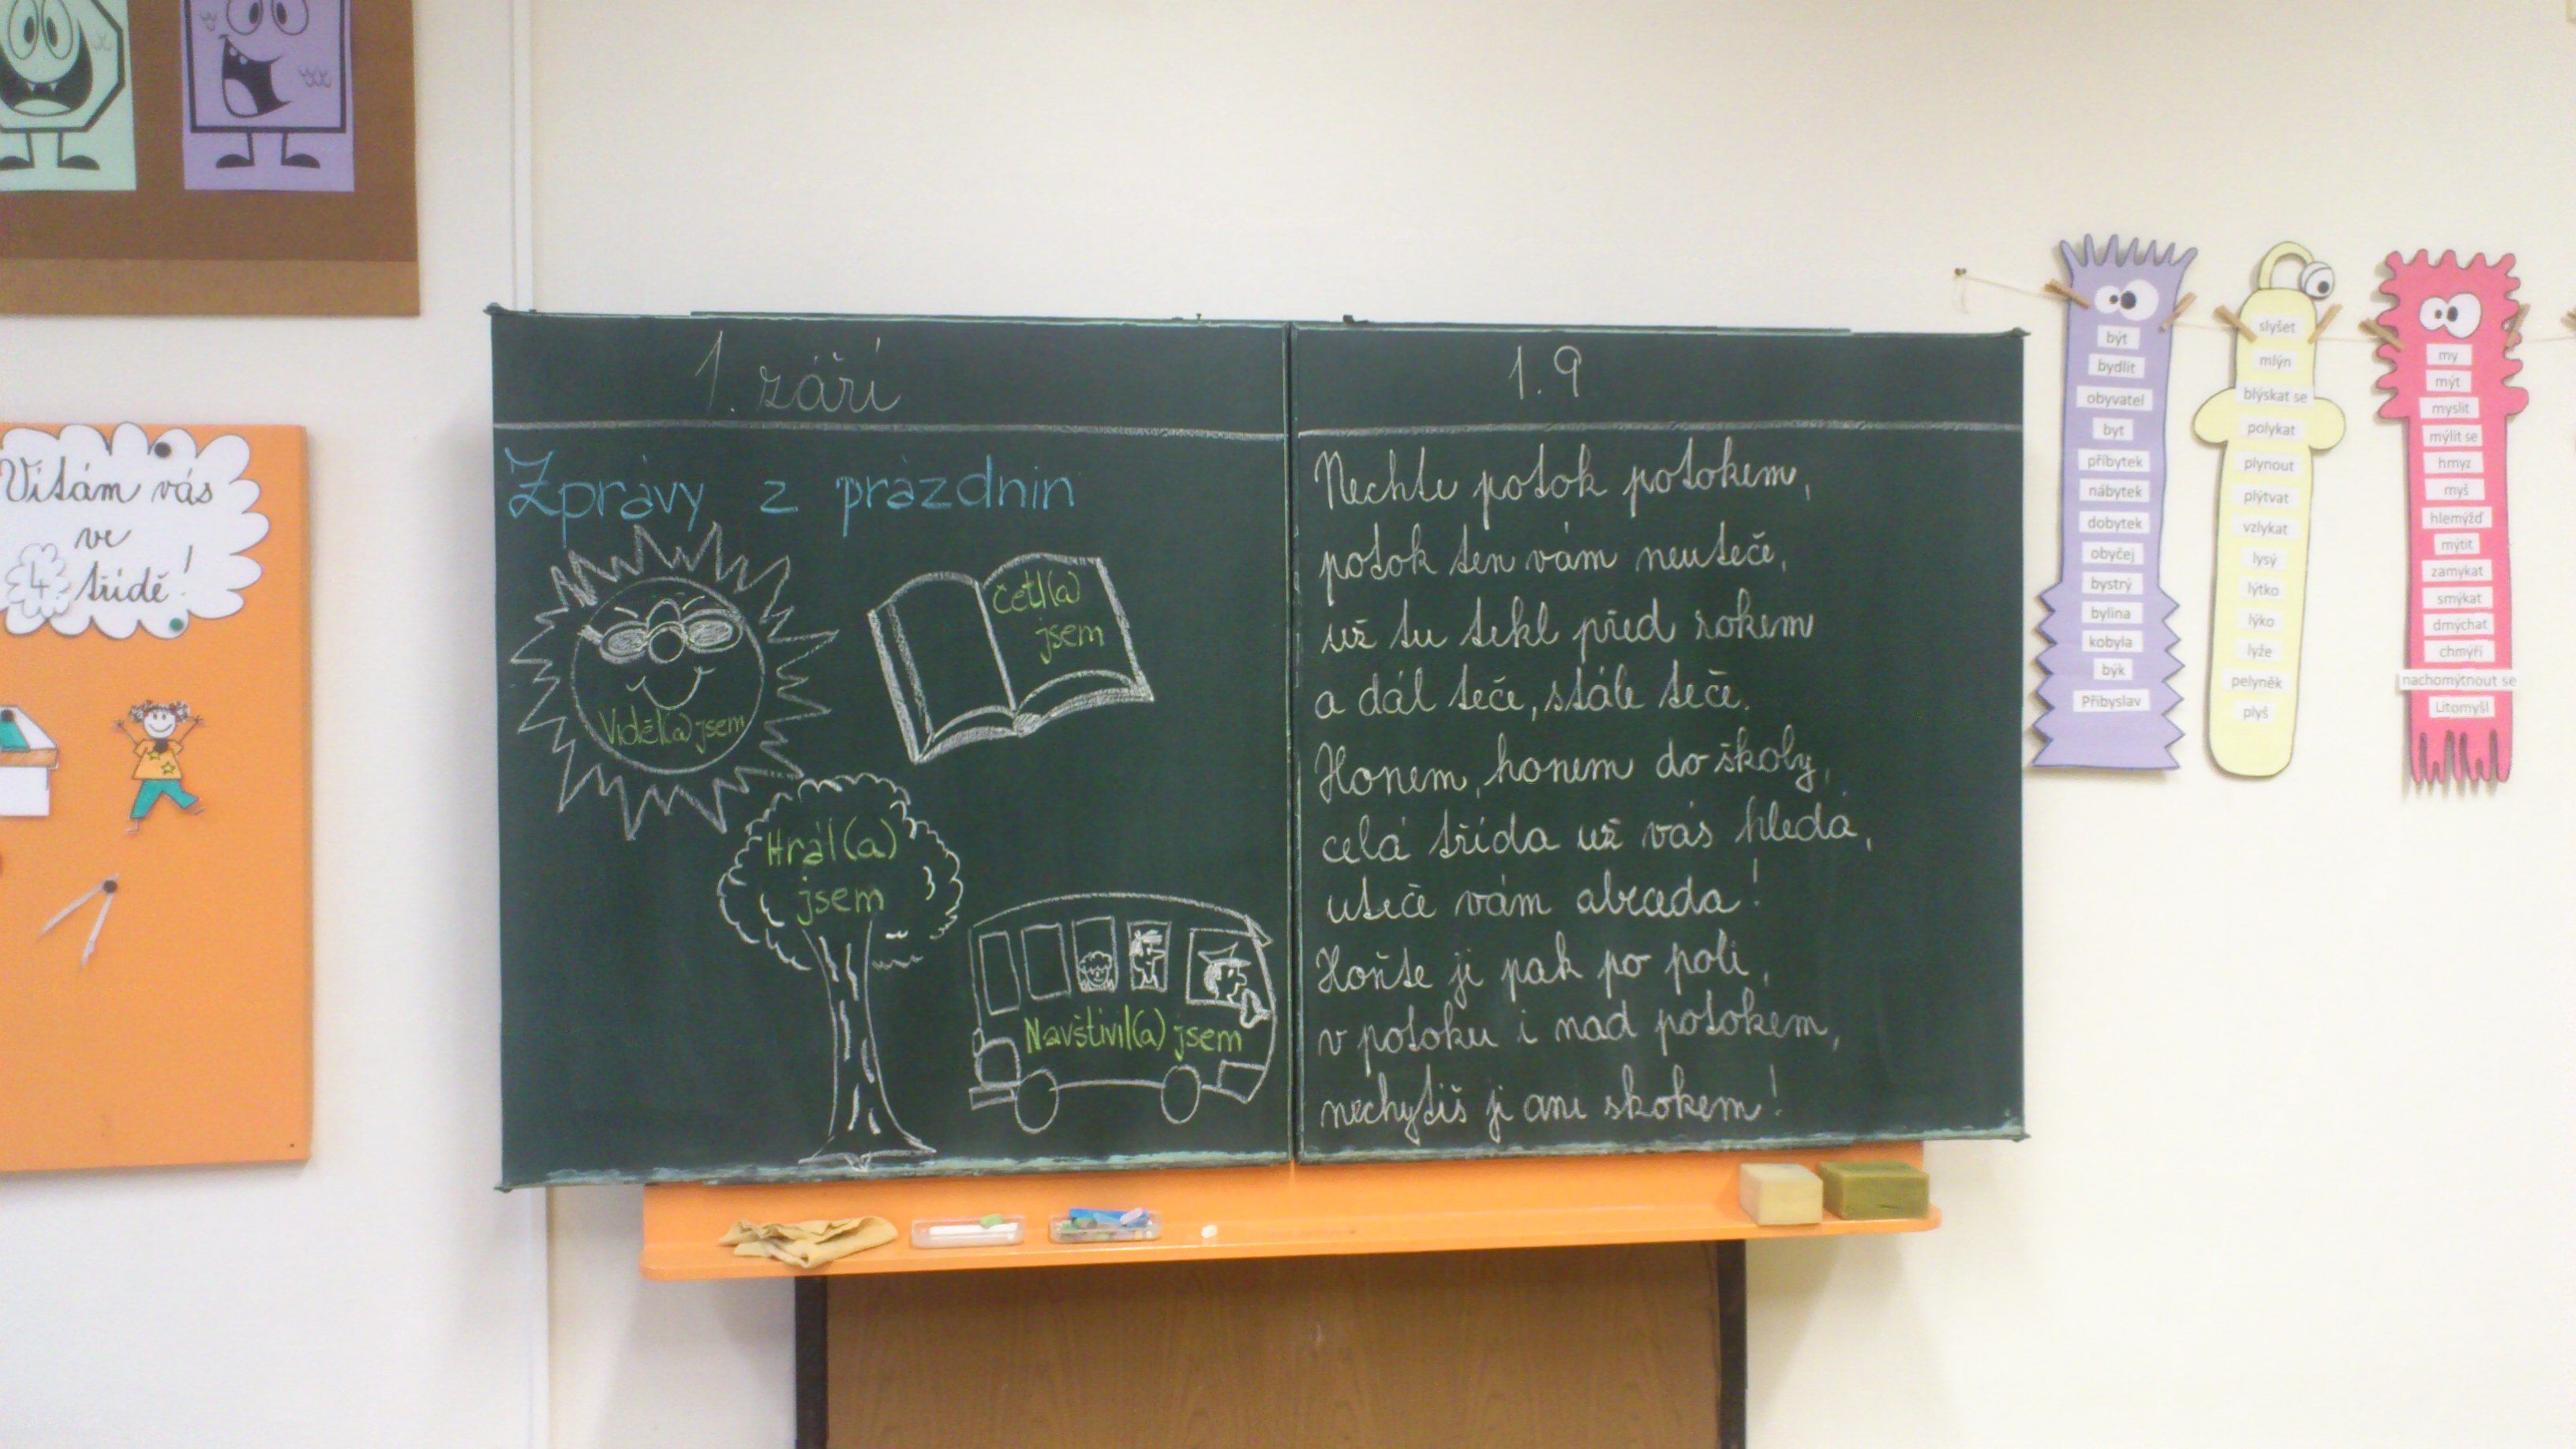 Vítám vás
ve
4. třídě!
1. září
Zprávy z prázdnin
Viděl(a) jsem
Četl(a)
jsem
Hrál(a)
jsem
Navštívil(a) jsem
1. 9
Nechte potok potokem,
potok ten vám neuteče,
už tu tekl před rokem
a dál teče, stále teče.
Honem, honem do školy,
celá třída už vás hledá,
uteče vám abeceda!
Hoňte ji pak po poli,
v potoku i nad potokem,
nechytíš ji ani skokem!
být
bydlit
obyvatel
byt
příbytek
nábytek
dobytek
obyčej
bystrý
bylina
kobyla
býk
Přibyslav
slyšet
mlýn
blýskat se
polykat
plynout
plýtvat
vzlykat
lysý
lýtko
lýko
lyže
pelyněk
plyš
my
mýt
myslit
mýlit se
hmyz
myš
hlemýžď
mýtit
zamykat
smýkat
dmýchat
chmýří
nachomýtnout se
Litomyšl